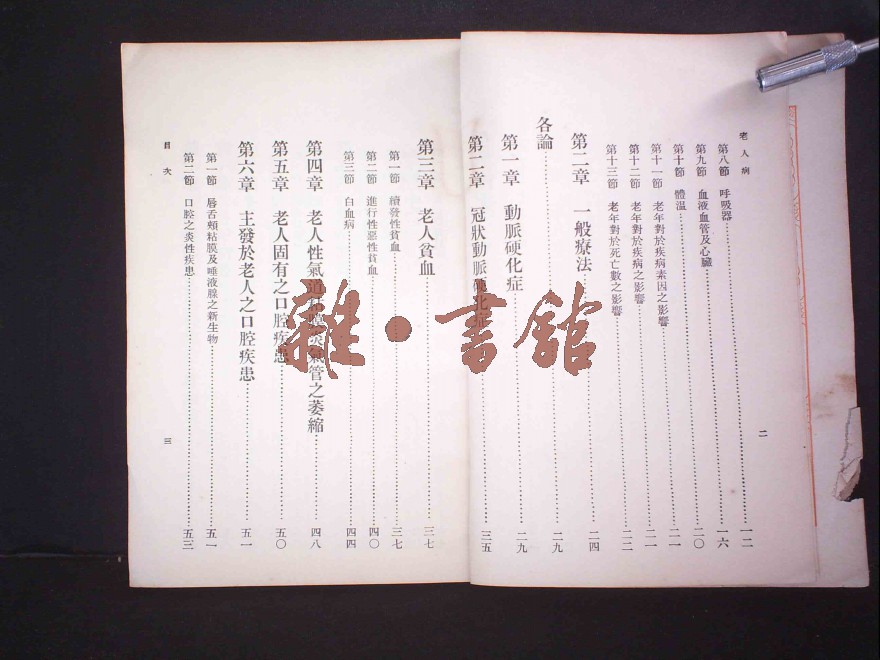 老人病
第八節 呼吸器……一二
第九節 血液血管及心臟……一六
第十節 體溫……二〇
第十一節 老年對於疾病素因之影響……二一
第十二節 老年對於疾病之影響……二一
第十三節 老年對於死亡數之影響……二二
第二章 一般療法……二四
各論……二九
第一章 動脈硬化症……二九
第二章 冠狀動脈硬化症……三五
二
第三章 老人貧血……三七
第一節 續發性貧血……三七
第二節 進行性惡性貧血……四〇
第三節 白血病……四四
第四章 老人性氣道粘膜炎氣管之萎縮……四八
第五章 老人固有之口腔疾患……五〇
第六章 主發於老人之口腔疾患……五一
第一節 唇舌頰粘膜及唾液腺之新生物……五一
第二節 口腔之炎性疾患……五三
目次
三
雜·書館